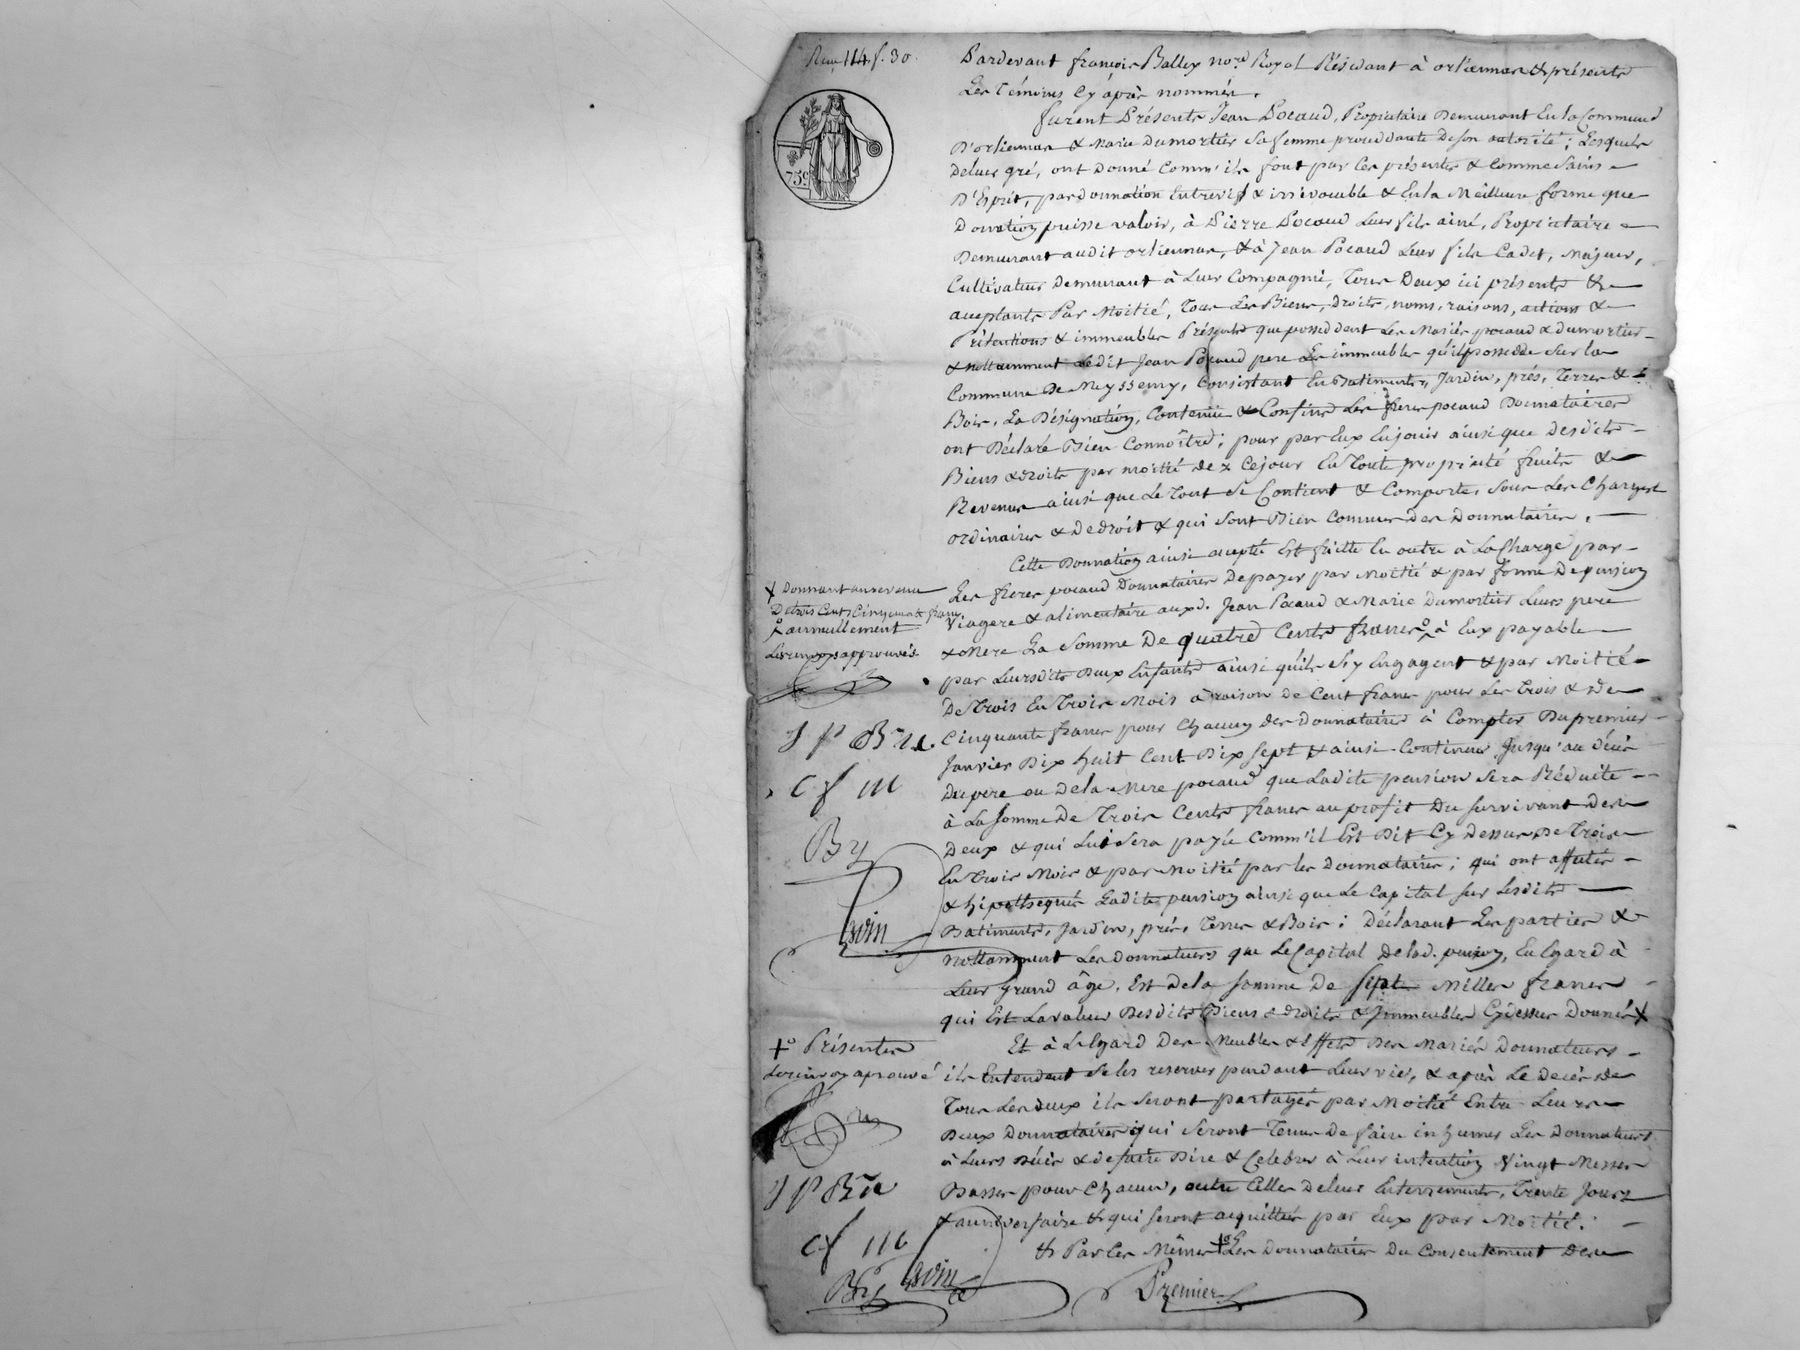 Rem 114 f. 30.
Pardevant françois Balley no.re Royal Résidant à orliennas & présents
Les Témoins Cy après nommés.
furent Présents Jean Pocaud, Propriétaire Demeurant En la Commune
D'orliennas & Marie Dumortier Sa femme procédante De son autorité; Lesquels
De leur gré, ont Donné Comm'ils font par Ces présentes & Comme Sains
D'Esprit, par donnation Entrevifs & irrévocable & En la Meilleure forme que
Donation puisse valoir, à Pierre Pocaud Leur fils ainé, Propriétaire
Demeurant audit orliennas, & à Jean Pocaud Leur fils Cadet, Majeur,
Cultivateur Demeurant à Leur Compagnie, Tous Deux ici présents &
aceptants Par Moitié, Tous Les Biens, Droits, noms, raisons, actions &
Prétentions & immeubles Présents que possèdent Les Mariés pocaud & dumortier
& nottamment Ledit Jean Pocaud pere Les immeubles qu'il possède Sur la
Commune De Meyssemy, Consistant En Batiments, Jardin, prés, Terres &
Bois, La Désignation, Contenue & Confins Les freres pocaud Donnataires
ont Déclaré Bien Connoître; pour par Eux En jouir ainsi que Desdits
Biens & droits par moitié dez Cejour En Toute propriété fruits &
Revenus ainsi que Le Tout Se Contient & Comporte, Sous Les Charges
ordinaires & De droit & qui Sont Bien Connues Des Donnataires.
Cette Donnation ainsi aceptée Est faitte En outre à La Charge par
Les freres pocaud Donnataires De payer par Moitié & par forme De pension
Viagere & alimentaire auxd. Jean Pocaud & Marie Dumortier Leurs pere
& Mere La Somme De quatre Cents francs à Eux payable
par Leursdits Deux Enfants ainsi qu'ils S'y Engagent & par Moitié
De Trois En Trois Mois à raison de Cent francs pour Les Trois & De
Cinquante francs pour Chacun des donnataires à Compter Du premier
Janvier Dix huit Cent Dix Sept & ainsi Continuer Jusqu'au décès
Du pere ou De la Mere pocaud que Ladite pension Sera Réduite
à La Somme De Trois Cents francs au profit Du Survivant des
Deux & qui Lui Sera payée Comm'il Est Dit Cy Dessus De Trois
En Trois Mois & par Moitié par les Donnataires; qui ont affecté
& hipothequé Ladite pension ainsi que Le Capital Sur Lesdits
Batiments, Jardin, prés, Terres & Bois; Déclarant Les parties &
Nottamment Les Donnateurs que Le Capital De lad. pension, En Egard à
Leur grand âge, Est De la Somme De Sept Milles francs
qui Est La valeur Desdits Biens & droits & Immeubles Cydessus Donnés X
Et à L'Egard Des Meubles & Effets Des Mariés Donnateurs
ils Entendent Se les reserver pendant Leur vie, & après Le Decès de
Tous Les deux ils Seront partagés par Moitié Entre Leurs
Deux Donnataires qui Seront Tenus De faire inhumer Les Donnateurs
à Leurs Décès & de faire Dire & Celebrer à Leur intention Vingt Messes
Basses pour Chacun, outre Celles De leur Enterrements, Trente Jours
& anniversaire & qui Seront acquittées par Eux par Moitié.
& Par Ces Mêmes Les Donnataires Du Consentement Des
Premier
75 c
X Donnant un revenu
De trois Cents Cinquante francs
annuellement
Les renvoys approuvés
J P
C f m
By
Présentes
Le renvoy aprouvé
J P
C f m
By